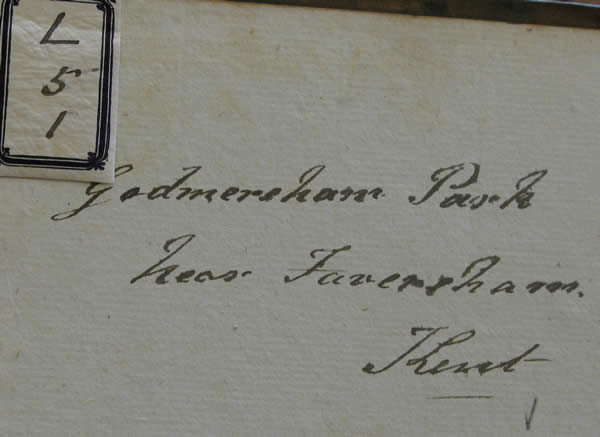 L
5
1
Godmersham Park
near Faversham.
Kent